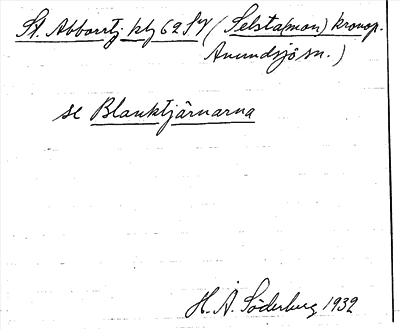 St. Abborrtj. klj 62 Sv (Selsta(mon) kronop.
Anundsjö sn.)
se Blanktjärnarna
H. Å. Söderberg 1932